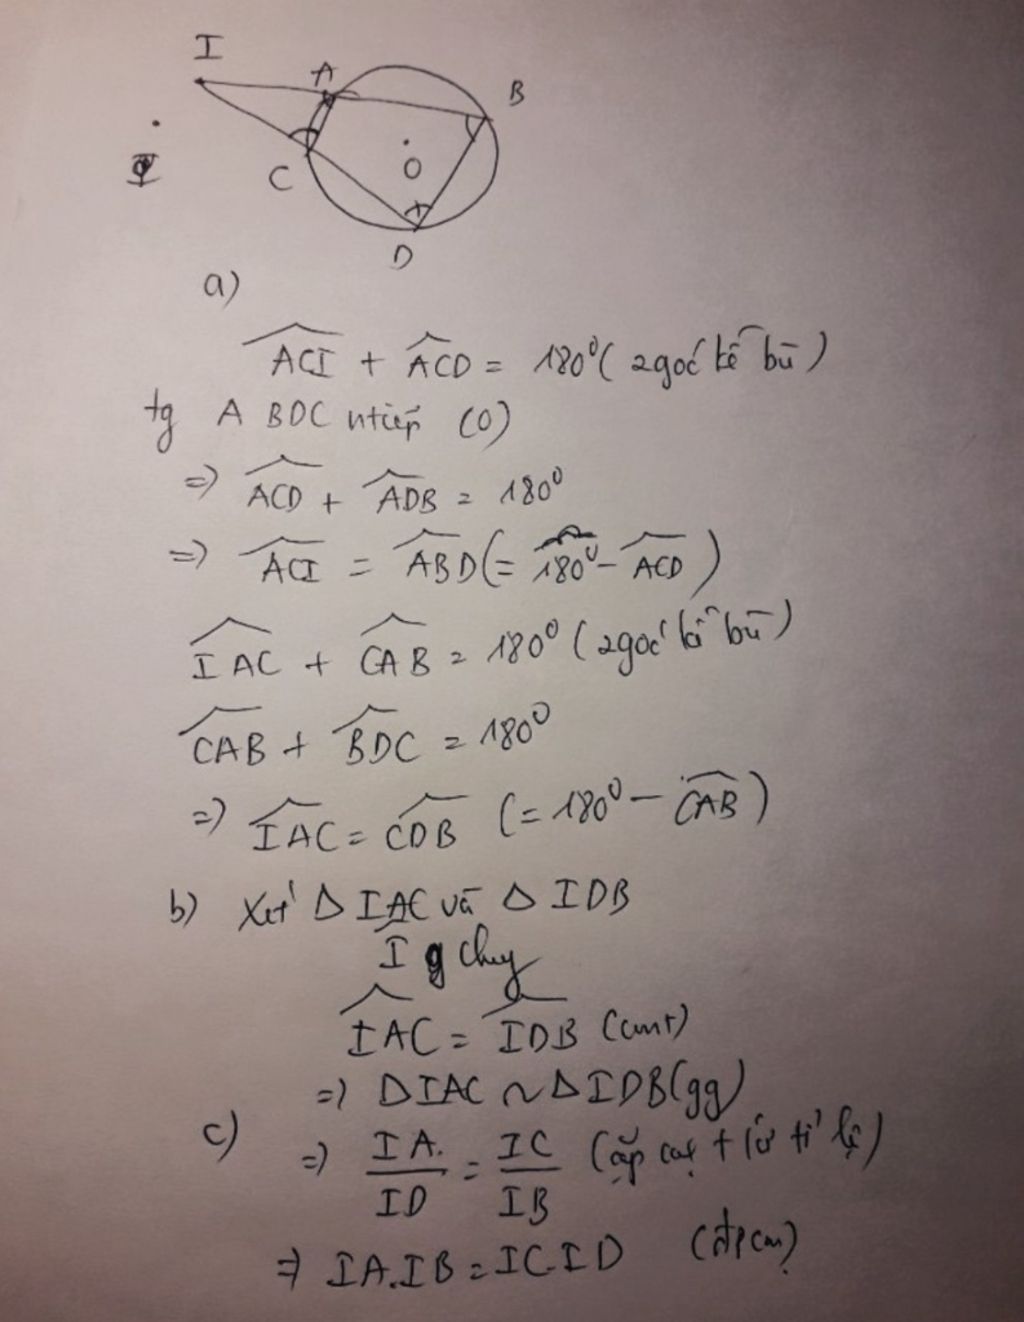 I
A
B
C
O
D
a)
ACI + ACD = 180⁰ ( 2góc kề bù )
tg A BDC ntiếp (O)
=> ACD + ADB = 180⁰
=> ACI = ABD (= 180⁰ - ACD )
IAC + CAB = 180⁰ ( 2góc kề bù )
CAB + BDC = 180⁰
=> IAC = CDB (= 180⁰ - CAB )
b) Xét Δ IAC và Δ IDB
I g chung
IAC = IDB (cmt)
=> ΔIAC ~ ΔIDB(gg)
c) => IA/ID = IC/IB (cặp cạnh t lứ tỉ lệ )
=> IA.IB = IC.ID (đpcm)